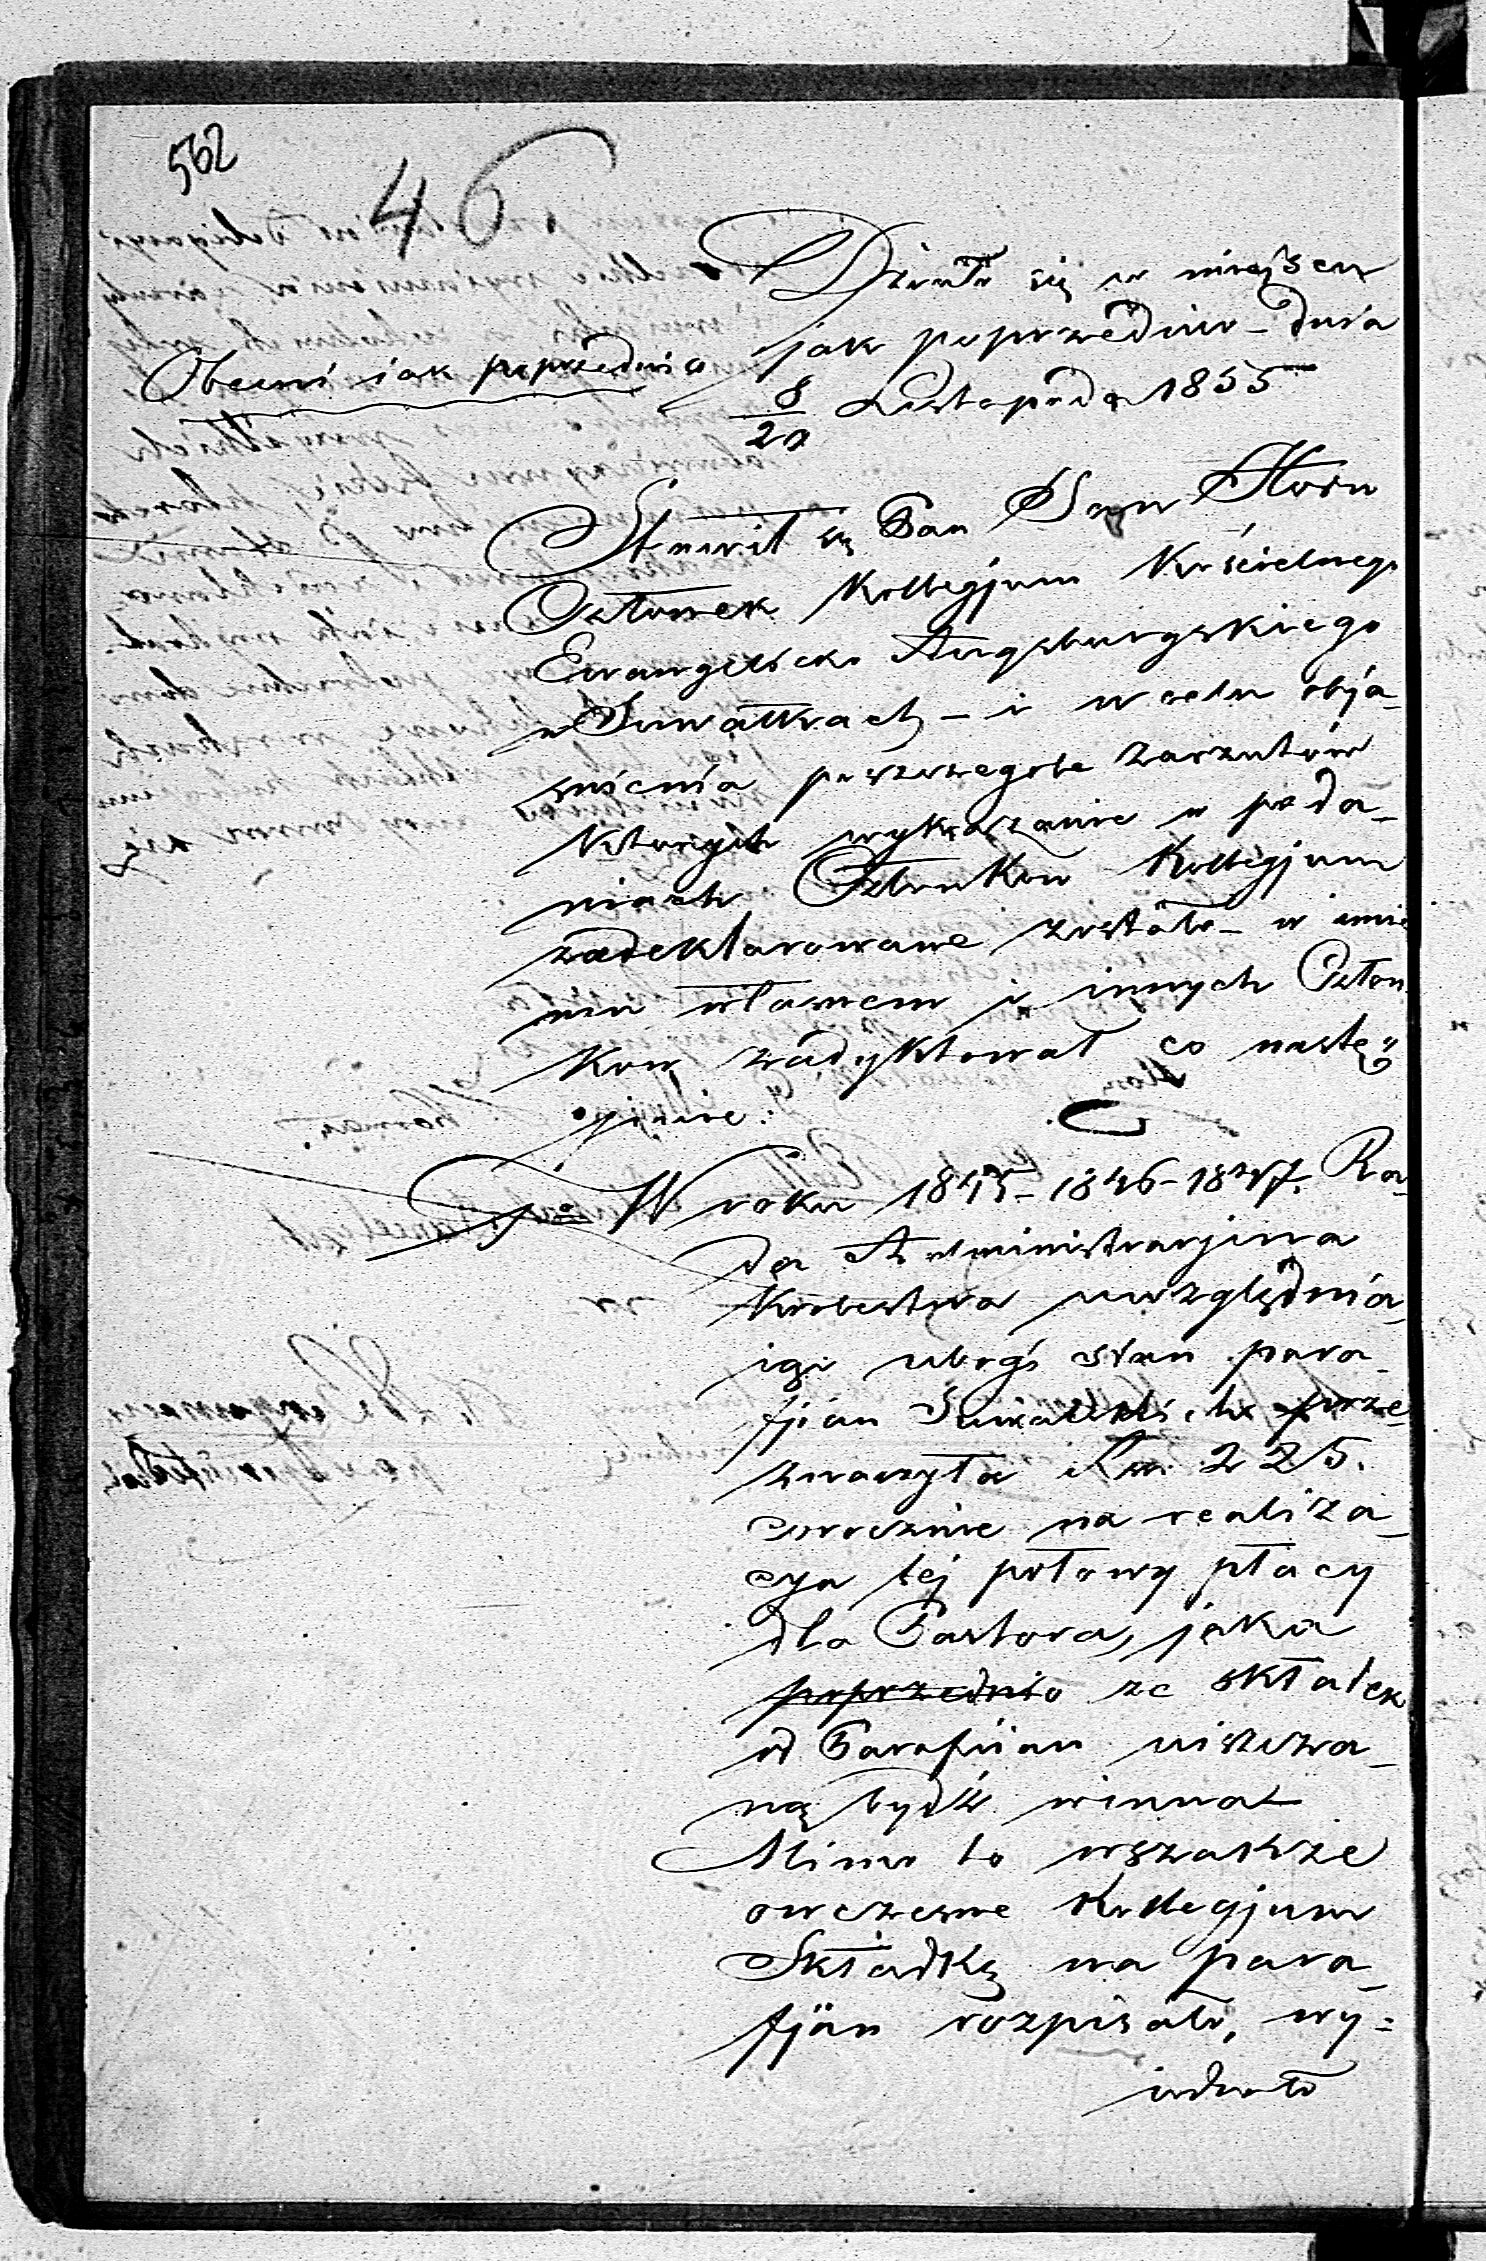 562
46
Działo się w miejscu
Obecni jak poprzednio
jak poprzednio – dnia
8/20 Listopada 1855
Stawił się Pan Jan
Członek Kollegjum Kościelnego
Ewangelicko Augsburgskiego
w Suwałkach – i w celu obja-
śnienia poszczegole zarzutów
których wykazanie w poda-
niach Członków Kollegjum
zadeklarowane zostało – w imie
niu własnem i innych Człon
ków zadyktował co nastę-
puie:
W roku 1845 – 1846 – 1847. Ra-
da Administracyjna
Królestwa uwzględnia-
iąc ubogi stan para-
fjan Suwalskich prze-
znaczyła Rsr. 225.
corocznie na realiza-
cya tej połowy płacy
dla Pastora, jaka
poprzednio ze składek
od Parafian uiszcza-
ną bydź winna
Mimo to wszakże
owczesne Kollegjum
Składkę na para-
fjan rozpisało, wy-
iednało